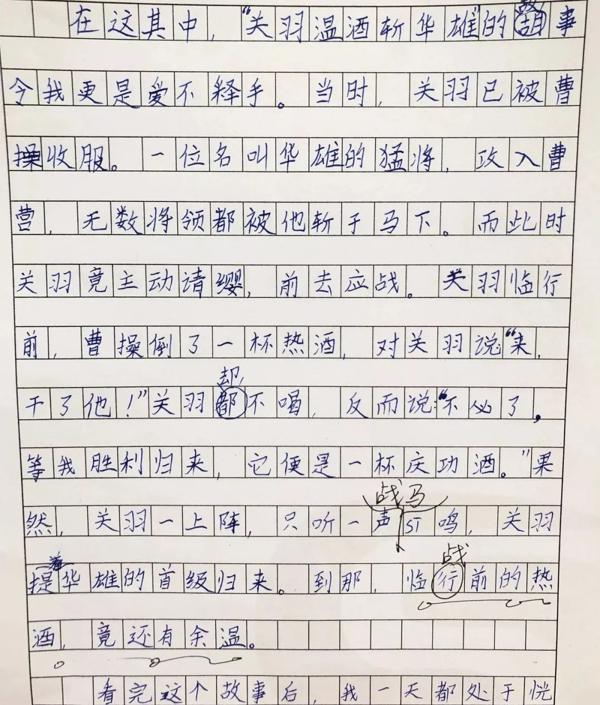 在这其中，“关羽温酒斩华雄”的故事
令我更是爱不释手。当时，关羽已被曹
操收服。一位名叫华雄的猛将，攻入曹
营，无数将领都被他斩于马下。而此时
关羽竟主动请缨，前去应战。关羽临行
前，曹操倒了一杯热酒，对关羽说“来，
却
干了他！”关羽都不喝，反而说“不必了，
等我胜利归来，它便是一杯庆功酒。”果
战马
然，关羽一上阵，只听一声鸣，关羽
着 战
提华雄的首级归来。到那，临行前的热
酒，竟还有余温。
看完这个故事后，我一天都处于恍